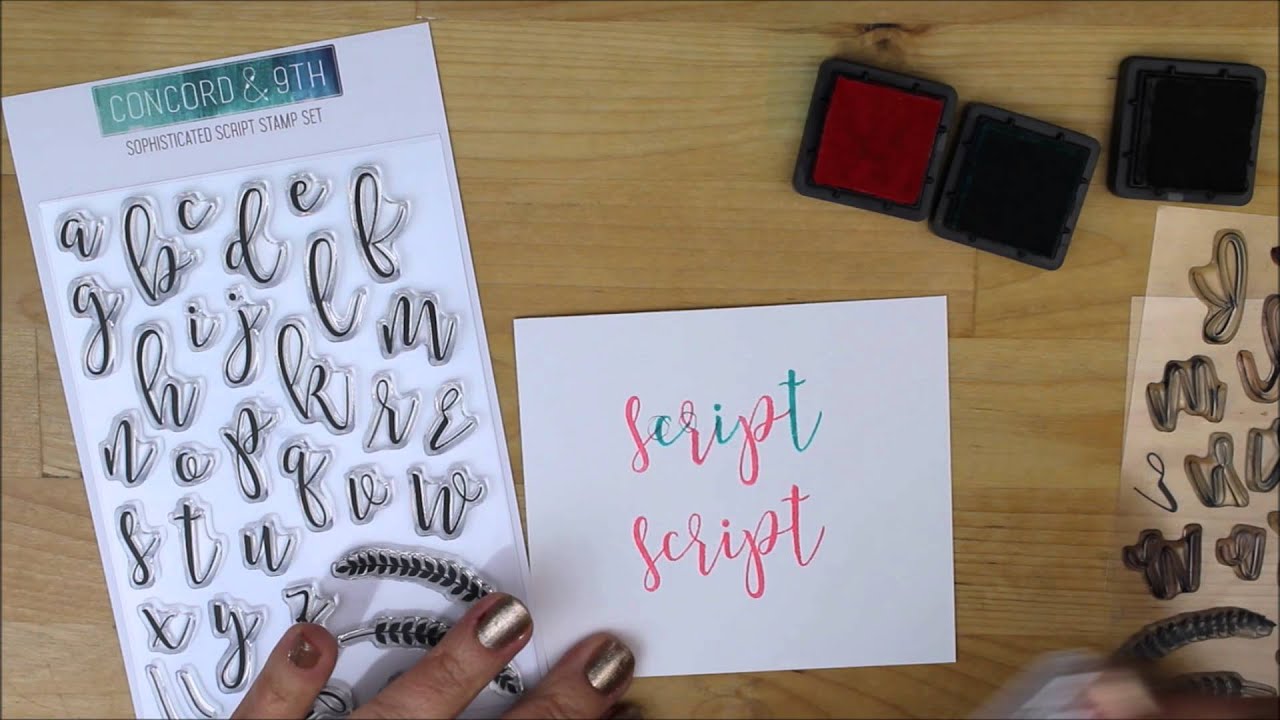 CONCORD & 9TH
SOPHISTICATED SCRIPT STAMP SET
a b c d e f
g i j l m
h k r
n o p q v w
s t u
x y z
script
script